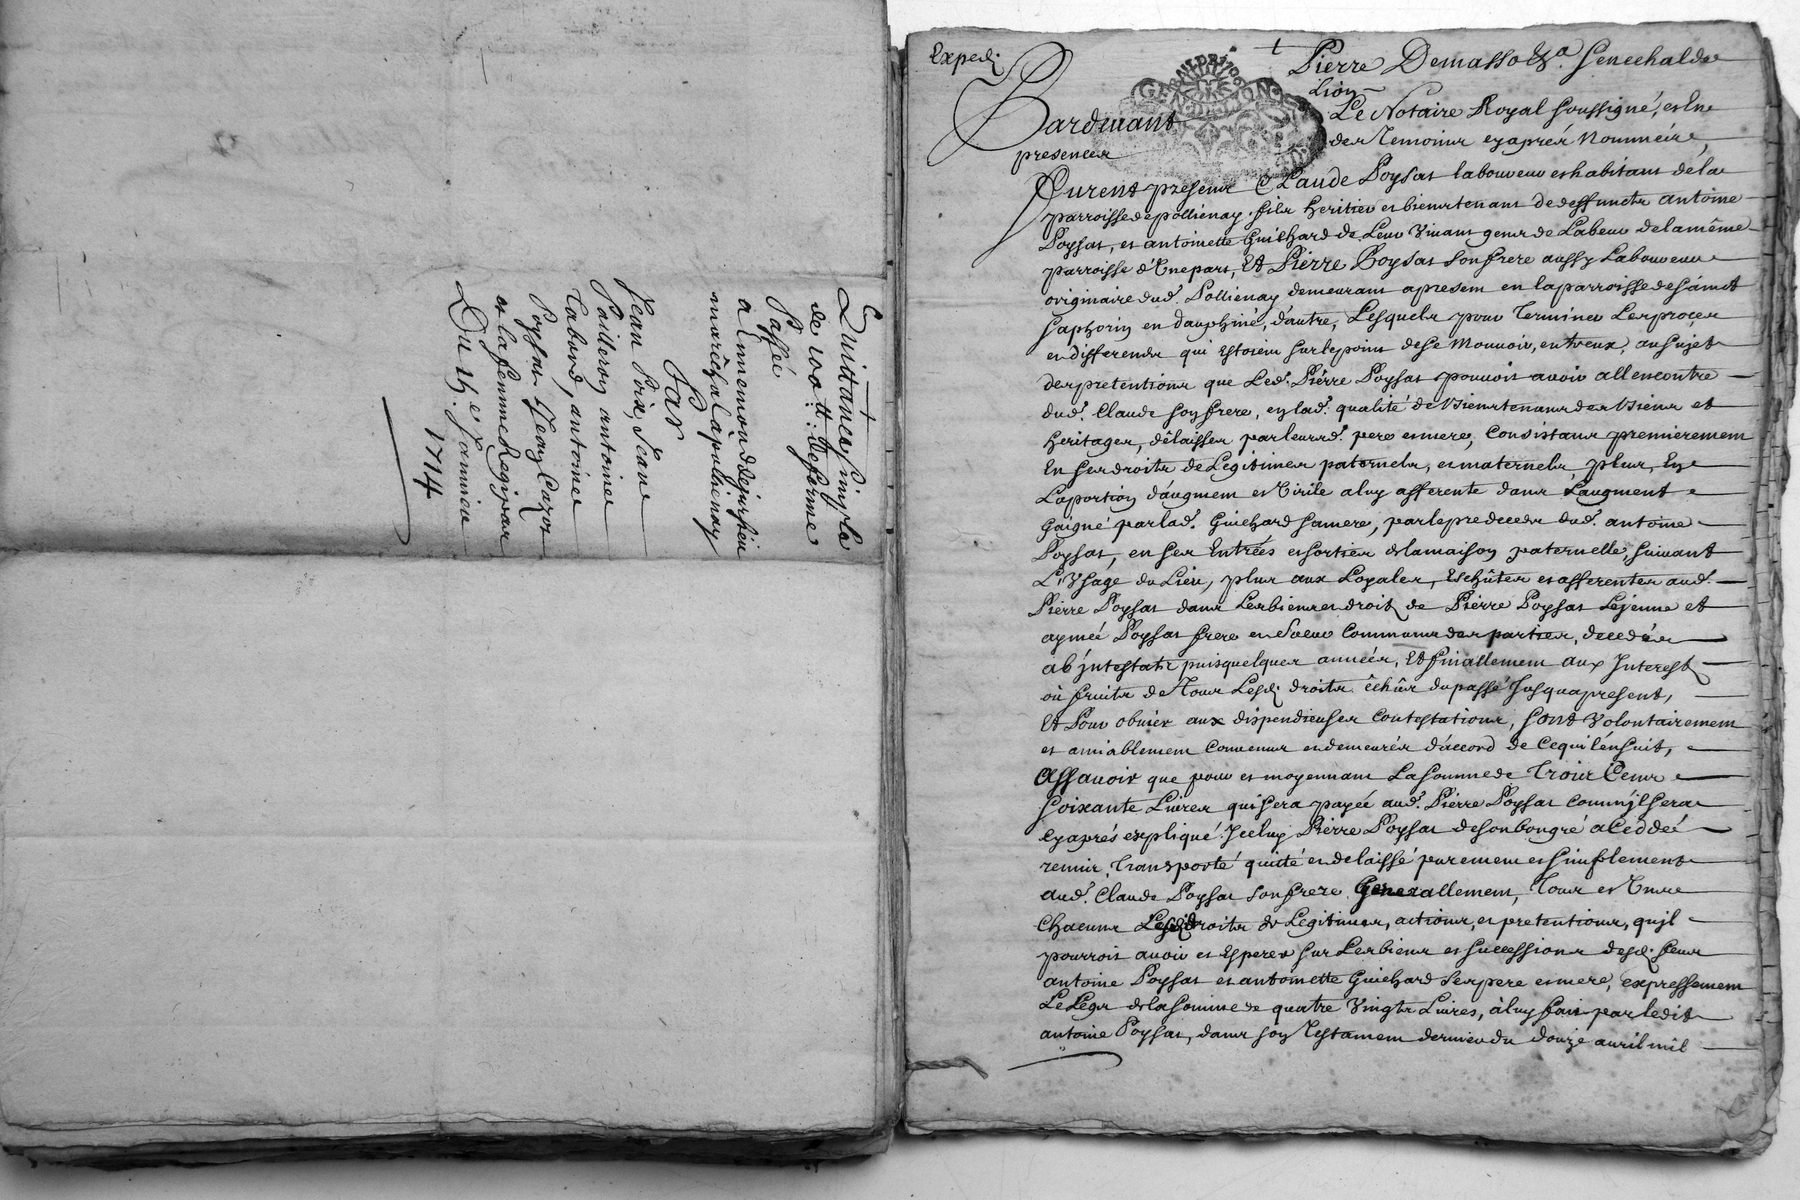 Quittance simple
de 100 tt: de ferme
Passée
a Ennemond dejussieu
marêchal à poulienay
Par
Jean Poix, Jeane
Pailleron antoinee
Tabard, antoinee
Poysat Jean Cazot
et la femme Regipar
Du 15.e Janvier
1714
Exped.
Pierre Demasso &.a Senechal de
Lion
Pardevant Le Notaire Royal soussigné, et En
presences des Temoins cy aprés Nommées,
Furent presens Claude Poysat laboureur et habitant de la
parroisse de pollienay, fils heritier et bienstenant de deffuncts antoine
Poysat, et antoinette Guichard de Leur Vivant gens de Labeur de la même
parroisse d'Une part, Et Pierre Poysat son frere aussy Laboureur
originaire dud. Pollienay demeurant apresent en la parroisse de sainct
saphorin en dauphiné, d'autre, Lesquels pour Terminer Les procez
et differends qui Estoient sur le point de se Mouvoir, entreux, au sujet
des pretentions que Led. Pierre Poysat pouvoit avoir allencontre
dud. Claude son frere, en lad. qualité de bienstenant des biens et
heritages, délaissés par leursd. pere et mere, Consistans premierement
En ses droits de Legitimes paternels, et maternels, plus, En
La portion d'augment et Virile a luy afferente dans L'augment
Gaigné par lad. Guichard sa mere, par le predeceds dud. antoine
Poysat, en ses Entrées et sorties de la maison paternelle, suivant
L'Usage du Lieu, plus aux Loyales, Eschûtes et afferentes aud.
Pierre Poysat dans Les biens et droits de Pierre Poysat Lejeune et
aymée Poysat frere et soeur communs des parties, decedés
ab jntestats puis quelques années, Et finallement aux Interests
où fruits de Tous Lesd. droits êchûs du passé Jusquapresent,
Et Pour obvier aux dispendieuses contestations, sont Volontairement
et amiablement Convenus et demeurés d'accord de ce qui l'ensuit,
Assavoir que pour et moyennant La somme de Trois Cents
soixante Livres qui sera payée aud. Pierre Poysat comm'jl sera
cy aprés expliqué. Jceluy Pierre Poysat de son bon gré a Ceddé
remis, Transporté quitté et delaissé purement et simplement
aud. Claude Poysat son frere Generallement, Tous et Uns
Chacuns Lesd. droits de Legitimes, actions, et pretentions, qu'jl
pourroit avoir et Esperer sur Les biens et successions desd. feus
antoine Poysat et antoinette Guichard ses pere et mere, expressement
Le Legs de la somme de quatre Vingts Livres, à luy fait par ledit
antoine Poysat, dans son Testament dernier du douze avril mil